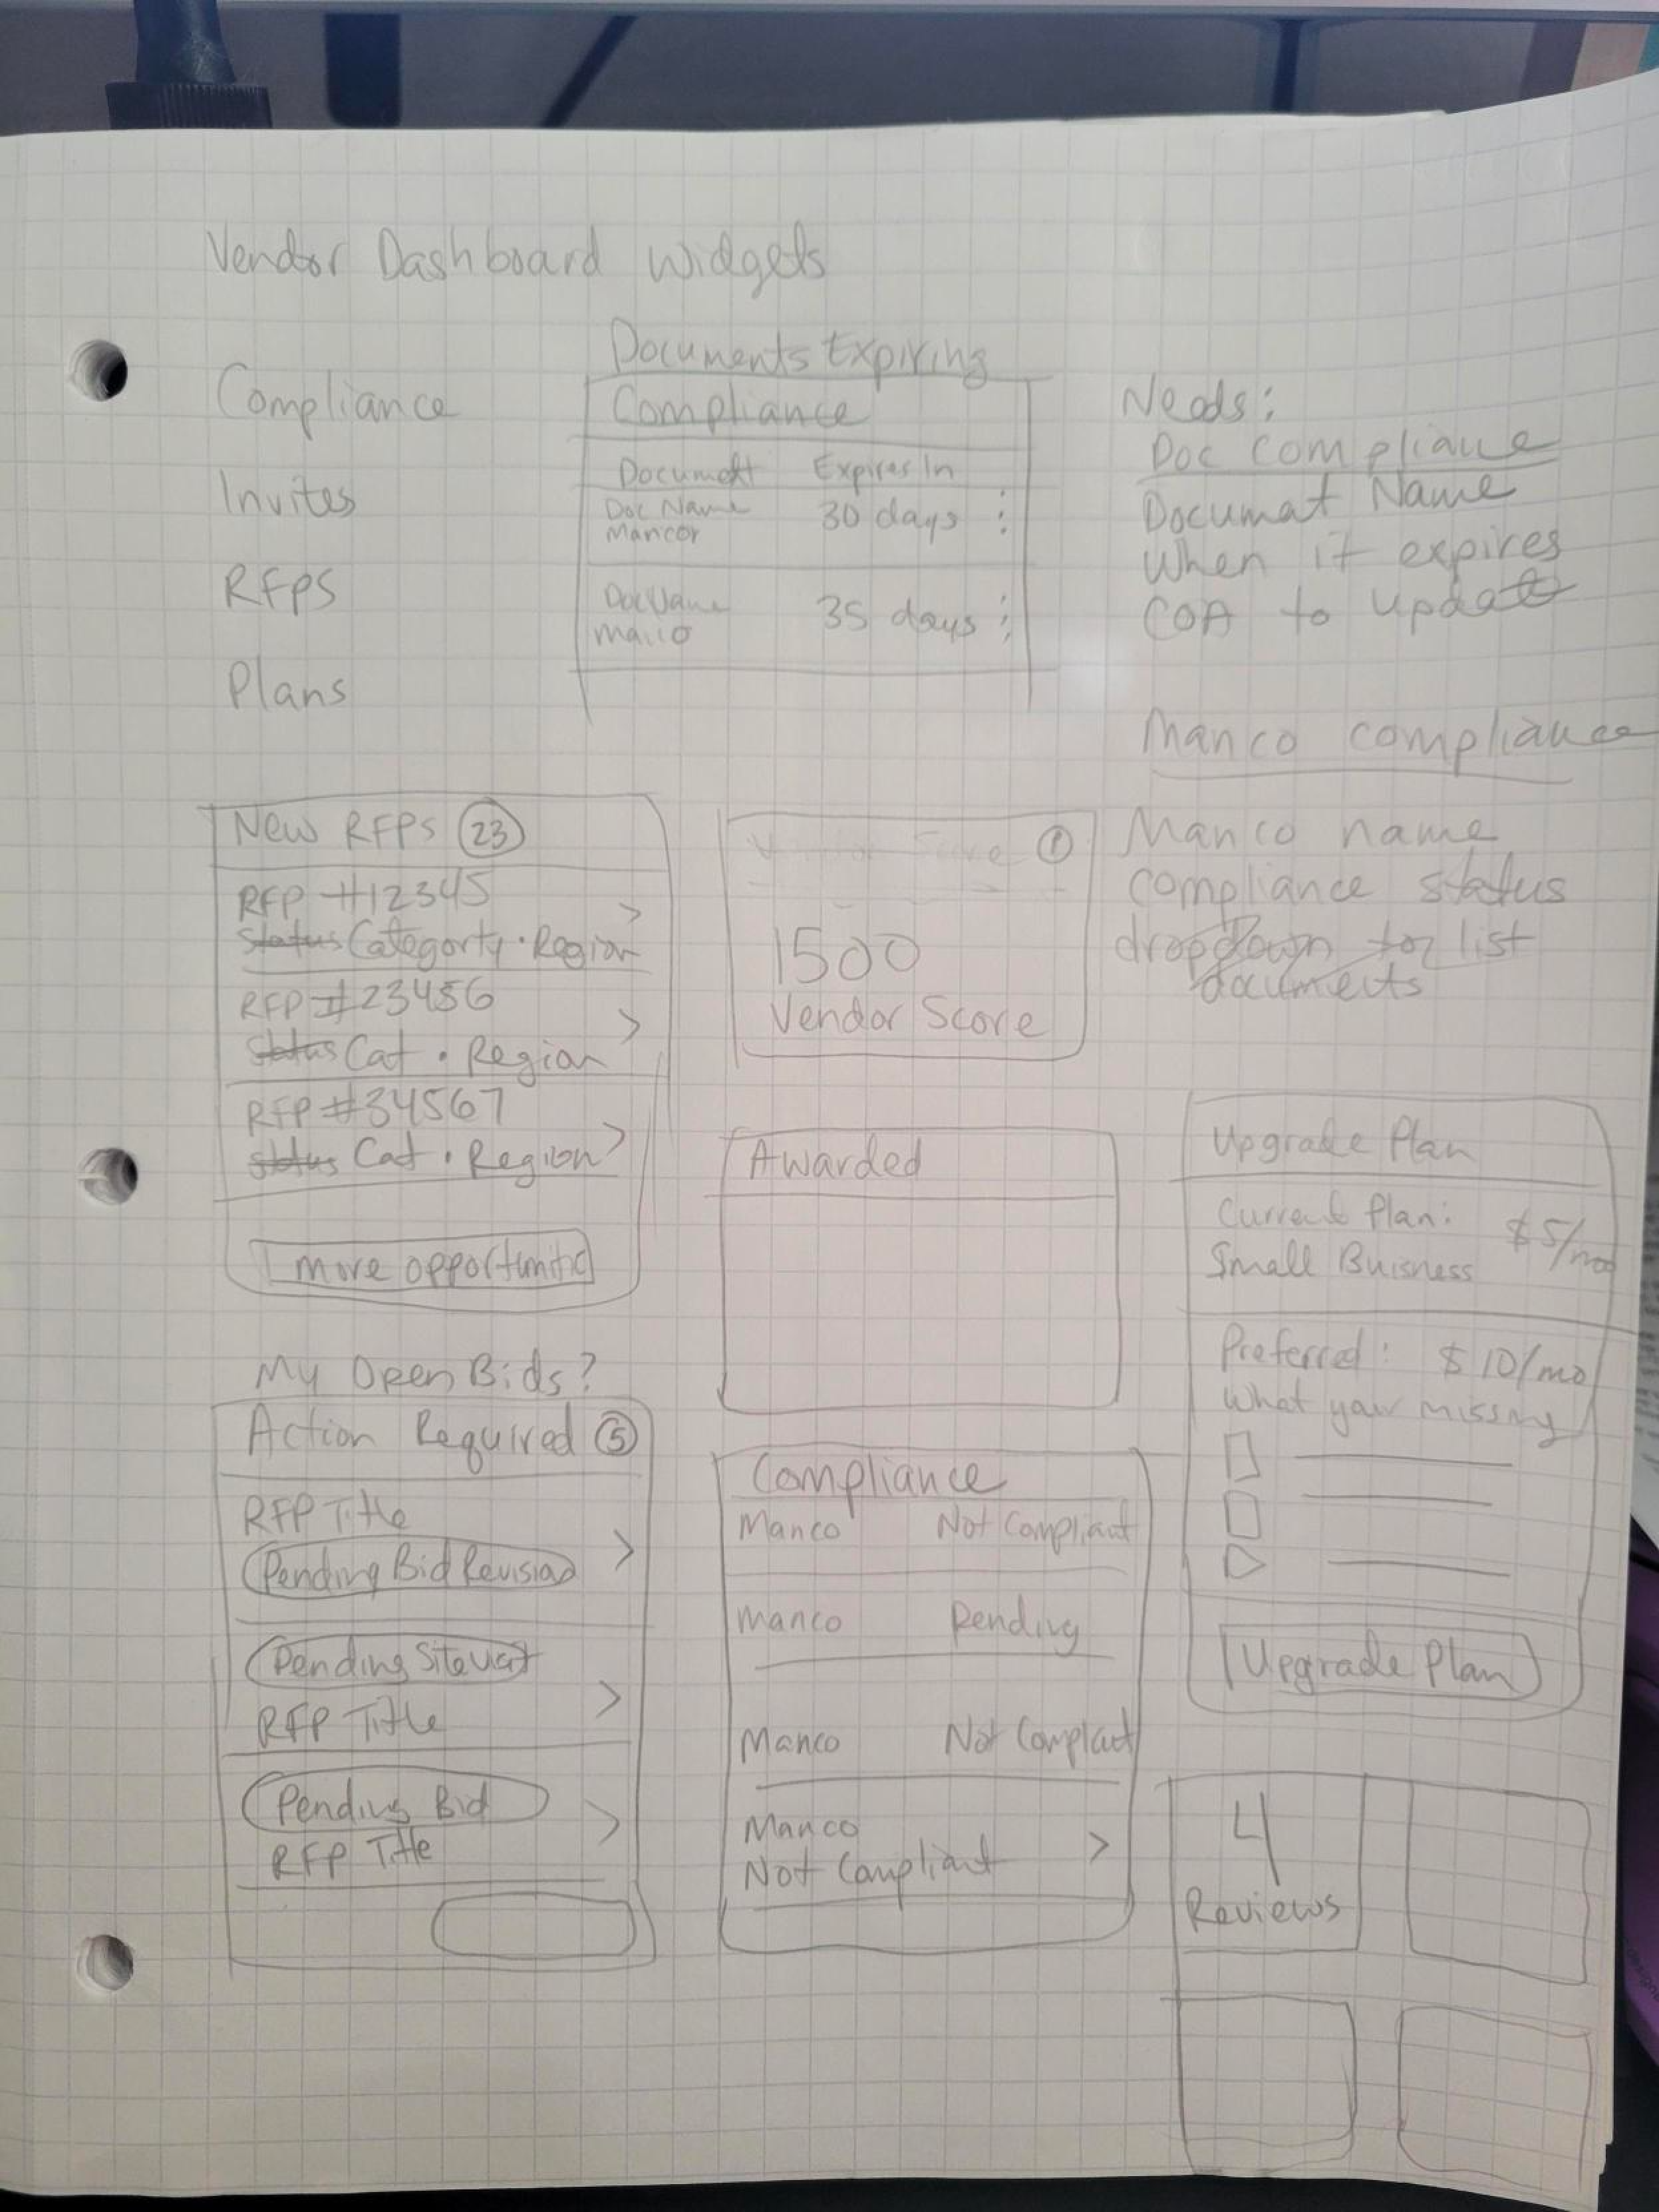 Vendor Dashboard Widgets
Compliance
Invites
RFPs
Plans
Documents Expiring
Compliance
Document Expires In
Doc Name 30 days
Mancor
35 days
Needs:
Doc Compliance
Document Name
When it expires
COA to update
Manco compliance
Manco name
compliance status
dropdown for list
documents
New RFPs 23
RFP #12345 >
Status Category · Region
RFP #23456 >
Status Cat · Region
RFP #34567 >
Status Cat · Region
more opportunitic
Vendor Score
1500
Vendor Score
Awarded
Upgrade Plan
Current Plan: $5/mo
Small Buisness
Preferred: $10/mo
What your missing
Upgrade Plan
My Open Bids?
Action Required 5
RFP Title
Pending Bid Revision >
Pending Site Visit
RFP Title >
Pending Bid >
RFP Title
Compliance
Manco Not Compliant
Manco Pending
Manco Not Compliant
Manco
Not Compliant >
4
Reviews